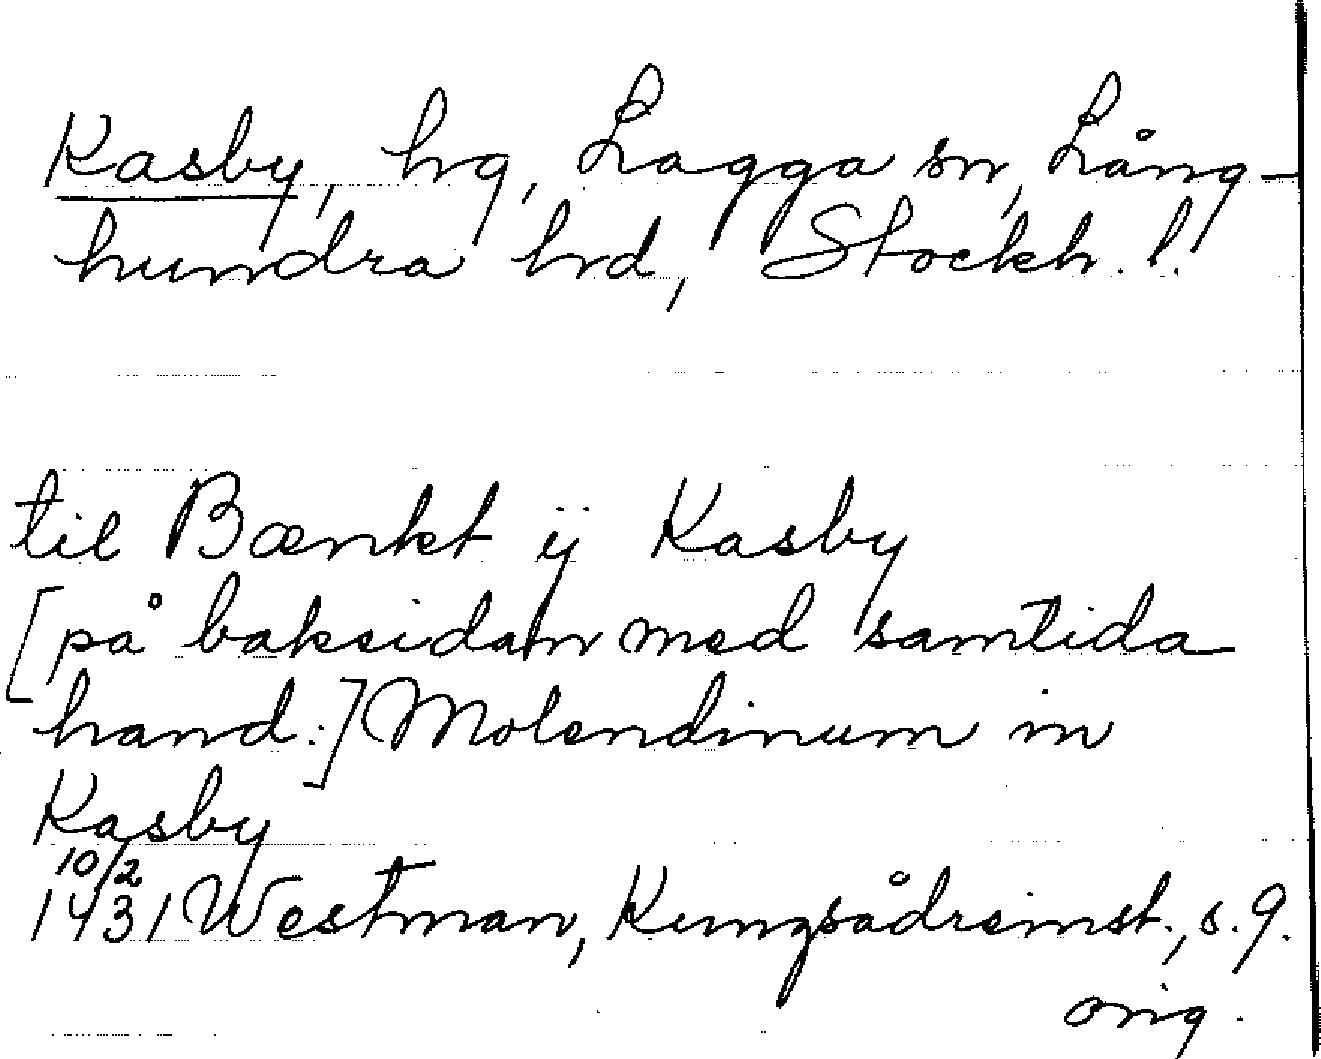 Kasby, hg, Lagga sn, Lång-
hundra hrd, Stockh. l.
til Bænkt ÿ Kasby
[på baksidan med samtida
hand:] Molendinum in
Kasby
10/2
1431 Westman, Kungsådreinst., s. 9.
orig.